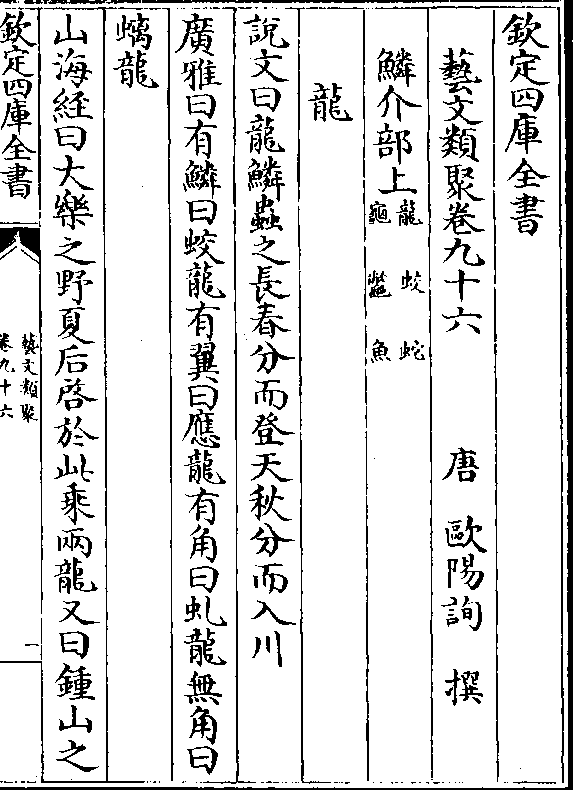 欽定四庫全書
藝文類聚卷九十六 唐 歐陽詢 撰
鱗介部上 龍 蛟 蛇
龜 鼈 魚
龍
說文曰龍鱗蟲之長春分而登天秋分而入川
廣雅曰有鱗曰蛟龍有翼曰應龍有角曰虬龍無角曰
螭龍
山海經曰大樂之野夏后啓於此乘兩龍又曰鍾山之
欽定四庫全書
藝文類聚
卷九十六
一